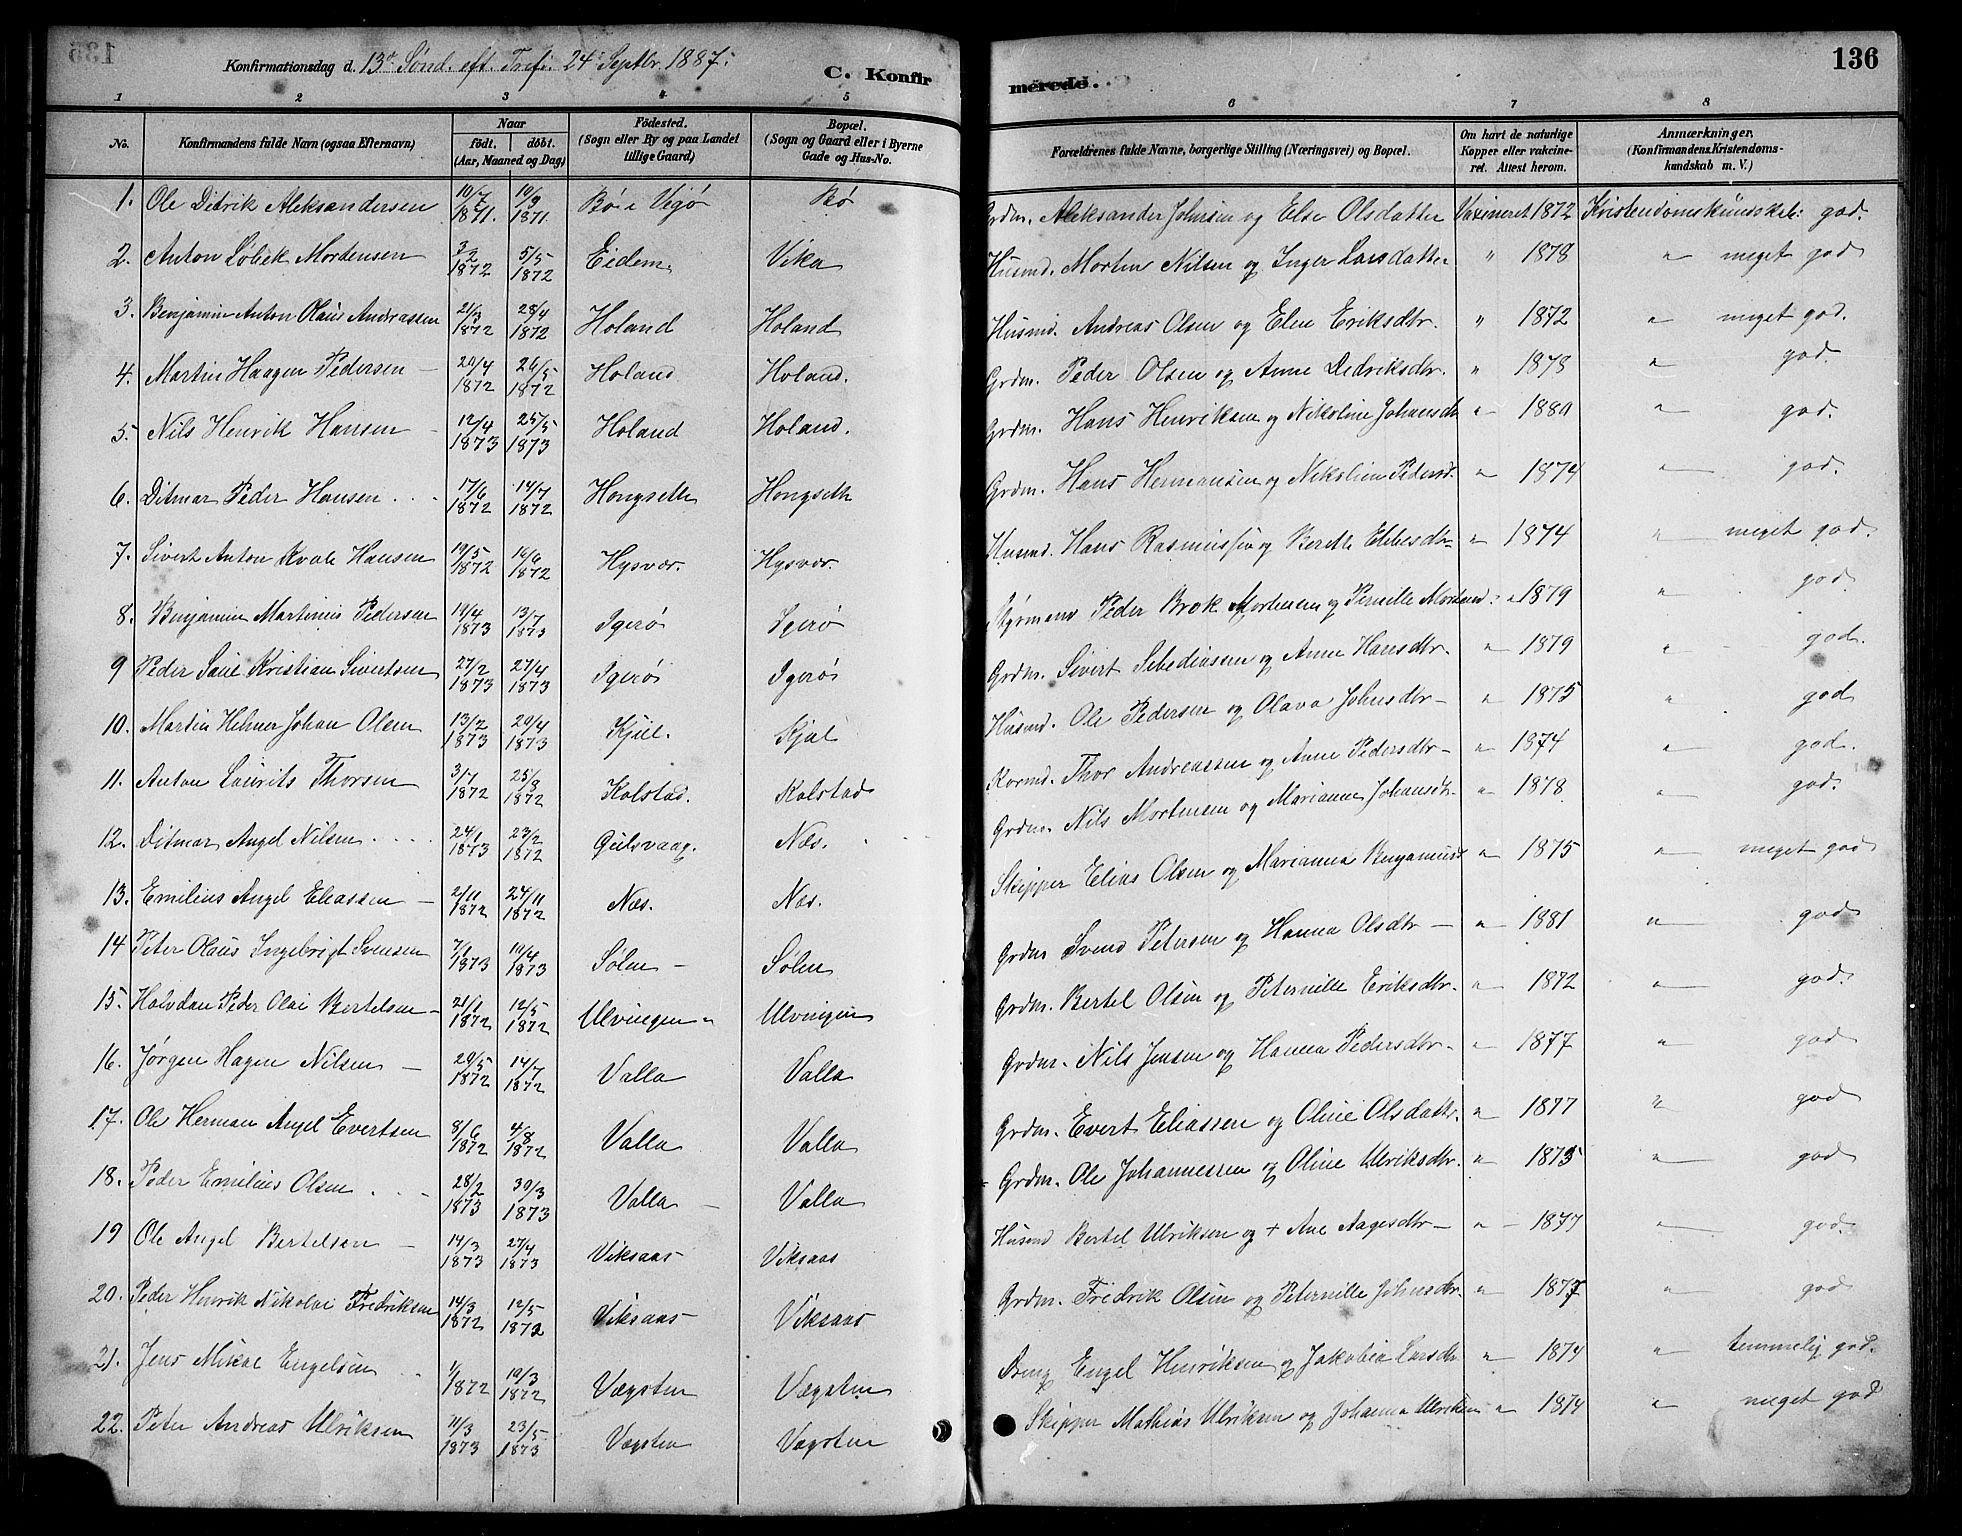 136
Konfirmationsdag d. 13de Sønd. eft. Tref. 24 Septbr 1887.
C. Konfirmerede.
1 2 3 4 5 6 7 8
No. | Konfirmandens fulde Navn (ogsaa Efternavn) | Naar födt. döbt. (Aar, Maaned og Dag) | Födested. (Sogn eller By og paa Landet tillige Gaard) | Bopæl. (Sogn og Gaard eller i Byerne Gade og Hus-No. | Forældrenes fulde Navne, borgerlige Stilling (Næringsvei) og Bopæl. | Om havt de naturlige Kopper eller vakcineret. Attest herom. | Anmærkninger. (Konfirmandens Kristendomskundskab m. V.)
1. Ole Ditrik Aleksandersen 10/7 1871. 10/9 1871 Bø i Vegø Bø Grdm. Aleksander Johnsen og Else Olsdatter Vaxineret 1872 Kristendomskundskab: god.
2. Anton Løbek Mordensen 3/2 1872 5/5 1872 Eidem Vika Husmd. Morten Nilsen og Inger Larsdatter " 1878 " meget god
3. Benjamin Anton Olaus Andreassen 21/3 1872 28/4 1872 Holand Holand Husmd. Andreas Olsen og Elen Eriksdtr. " 1872 " meget god.
4. Martin Haagen Pedersen 20/4 1872 26/5 1872 Holand Holand. Grdm. Peder Olsen og Anne Didriksdtr. " 1878 " god.
5. Nils Henrik Hansen 12/4 1873 25/5 1873 Holand Holand. Grdm. Hans Henriksen og Nikoline Johansdtr " 1880 " god.
6. Ditmar Peder Hansen 17/6 1872 14/7 1872 Hongseth Hongseth Grdm. Hans Hermansen og Nikoline Pedersd. " 1874 " god.
7. Sivert Anton Kvale Hansen 19/5 1872 16/6 1872 Hysvær. Hysvær. Husmd. Hans Rasmussen og Berthe Ebbesdtr " 1874 " meget god.
8. Benjamin Martinus Pedersen 14/4 1873 13/7 1873 Igerø Igerø Styrmand Peder Brok Mortensen og Pernille Mortensd: " 1879 " god
9 Peder Saul Kristian Sivertsen 27/2 1873 27/4 1873 Igerø Igerø Grdm. Sivert Sebediassen og Anne Hansdtr. " 1879 " god.
10. Martin Helmer Johan Olsen 13/2 1873 20/4 1873 Kjul. Kjul Husmd. Ole Pedersen og Olava Johnsdtr " 1875 " god
11. Anton Laurits Thorsen 3/7 1872 25/8 1872 Kolstad. Kolstad Thor Andreassen og Anne Pedersdtr " 1874 " god.
12. Ditmar Angel Nilsen 24/1 1873 23/2 1872 Gulsvaag. Næs. Grdm. Nils Mortensen og Marianne Johansdtr. " 1878 " god.
13. Emilius Angel Eliassen 2/11 1872 24/11 1872 Næs. Næs. Skipper Elias Olsen og Marianna Benjaminsd " 1875 " meget god
14 Peter Olaus Ingebrigt Svensen 7/1 1873 10/4 1873 Sølen Sølen Grdm Svend Petersen og Hanna Olsdtr " 1881 " god
15. Halvdan Peder Olai Bertelsen 21/1 1872 12/5 1872 Ulvingen Ulvingen Grdm. Bertel Olsen og Peternille Eriksdtr. " 1872 " god.
16. Jørgen Hagen Nilsen 20/5 1872 14/7 1872 Valla Valla Grdm. Nils Jensen og Hanna Pedersdtr " 1877 " god
17. Ole Herman Angel Evertsen 8/6 1872 4/8 1872 Valla Valla Grdm. Evert Eliassen og Oline Olsdatr. " 1877 " god
18. Peder Emilius Olsen 28/2 1873 30/3 1873 Valla Valla Grdm. Ole Johannessen og Oline Ulriksdtr. " 1875 " god
19 Ole Angel Bertelsen 14/3 1873 27/4 1873 Viksaas Viksaas Husmd Bertel Ulriksen og + Ane Aagesdtr " 1877 " god.
20. Peder Henrik Nikolai Fredriksen 14/3 1872 12/5 1872 Viksaas Viksaas Grdm. Fredrik Olsen og Peternille Johnsdtr. " 1877 " god
21. Jens Mikal Engelsen 1/1 1872 10/3 1872 Vægsten Vægsten Engel Henriksen og Jakobia Larsdtr " 1874 " temmelig god.
22. Peter Andreas Ulriksen 11/3 1873 23/5 1873 Vægsten Vægsten Skipper Mathias Ulriksen og Johanna Ulriksen " 1874 " meget god